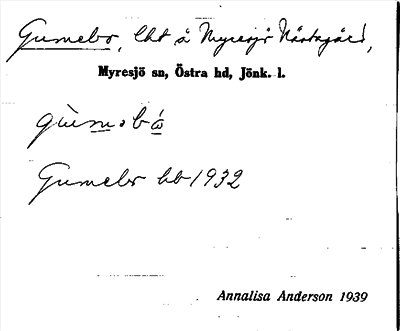 Gumebo, lht å Myresjö Västragård,
Myresjö sn, Östra hd, Jönk. l.
gùmebó
Gumebo hb 1932
Annalisa Anderson 1939